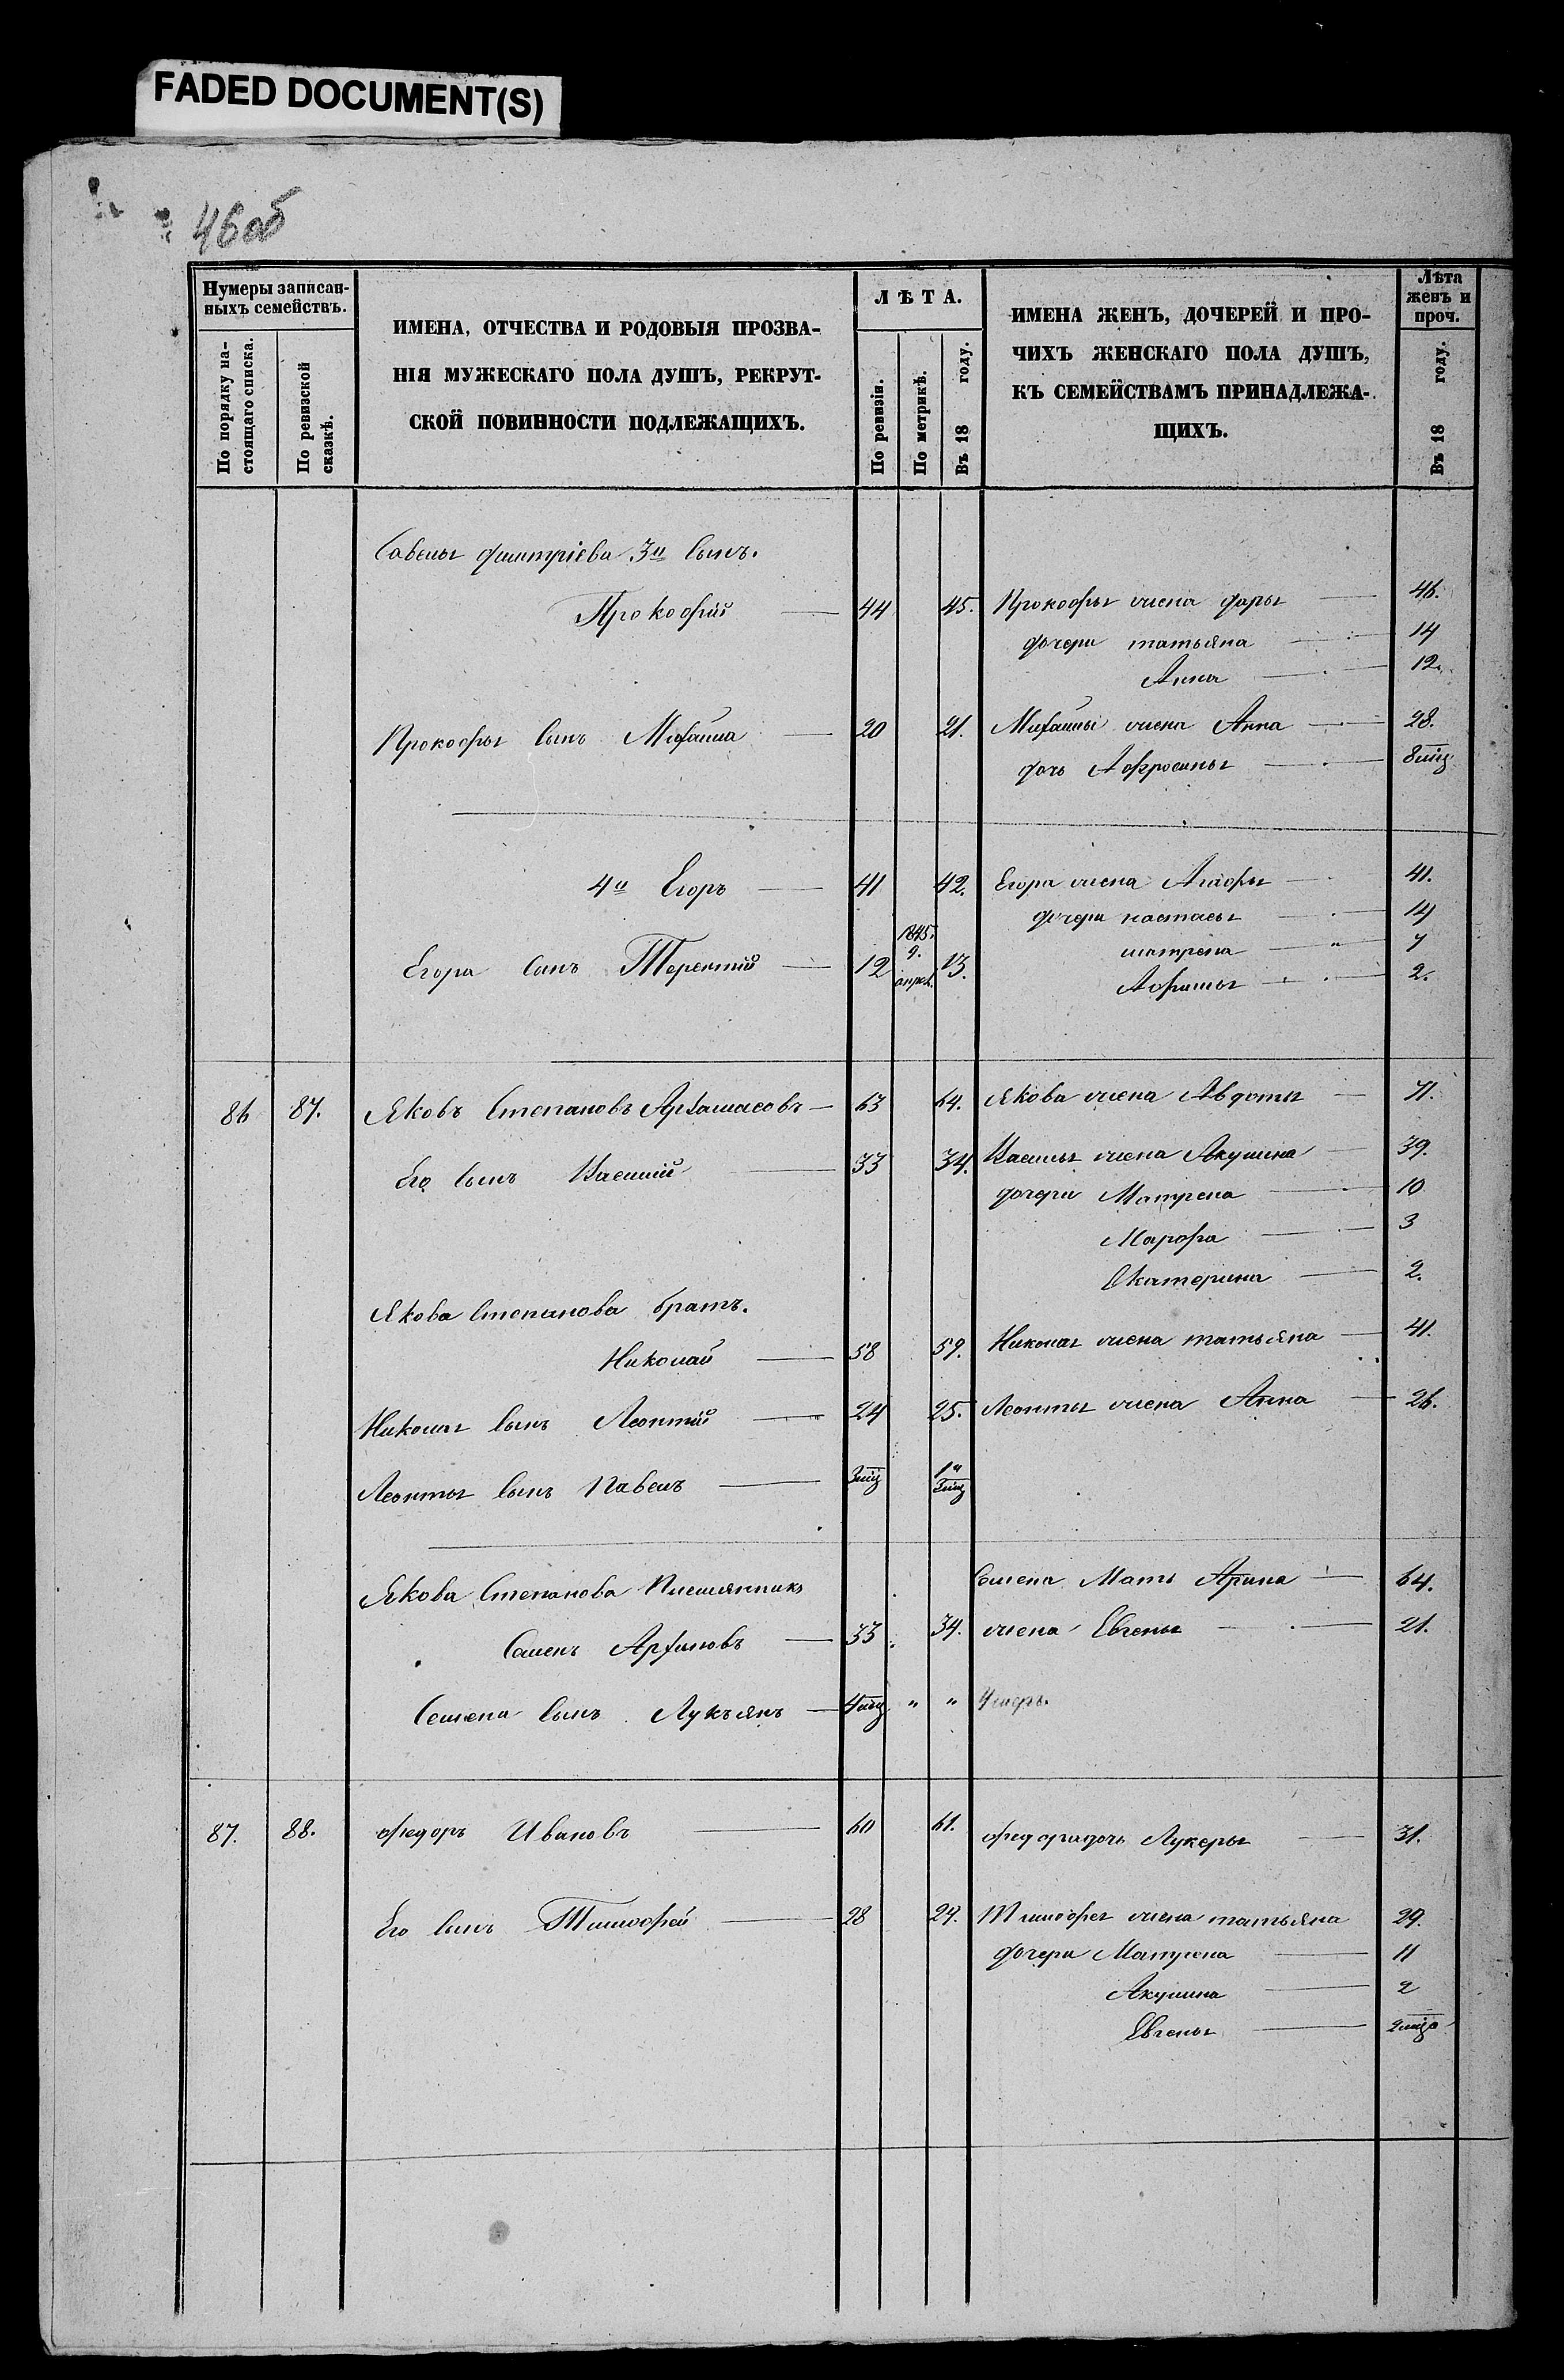 FADED DOCUMENT(S)
46об
Нумеры записан-
ныхъ семействъ.
По порядку на-
стоящаго списка.
По ревизской
сказкѣ.
ИМЕНА, ОТЧЕСТВА И РОДОВЫЯ ПРОЗВА-
НІЯ МУЖЕСКАГО ПОЛА ДУШЪ, РЕКРУТ-
СКОЙ ПОВИННОСТИ ПОДЛЕЖАЩИХЪ.
ЛѢТА.
По ревизіи.
По метрикѣ.
Въ 18 году.
ИМЕНА ЖЕНЪ, ДОЧЕРЕЙ И ПРО-
ЧИХЪ ЖЕНСКАГО ПОЛА ДУШЪ,
КЪ СЕМЕЙСТВАМЪ ПРИНАДЛЕЖА-
ЩИХЪ.
Лѣта
женъ и
проч.
Въ 18 году.
Савелья Дмитріева 3й Сынъ.
Прокофій — 44 45. Прокофья жена Дарья — 46.
дочери татьяна — 14
Анна — 12.
Прокофья Сынъ Михайла — 20 21. Михайлы жена Анна — 28.
дочь Афросинья — 8 мцъ
4й Егоръ — 41 42. Егора жена Агафья — 41.
дочери настасья — 14
матрена — 7
Афимья — 2.
Егора Сынъ Терентій — 12 1845. 9. апрел. 13.
86 87. Яковъ Степановъ — 63 64. Якова жена Авдотья — 71.
Его Сынъ Василій — 33 34. Василья жена Акулина — 39.
дочери Матрена — 10
Марфа — 3
Екатерина — 2.
Якова Степанова братъ.
Николай — 58 59. Николая жена татьяна — 41.
Николая Сынъ Леонтій — 24 25. Леонтья жена Анна — 26.
Леонтья Сынъ Павелъ — 3 мцъ 1й 3 мцъ
Якова Степанова Племянникъ Семена Мать Арина — 64.
Семенъ Архиповъ — 33 34. жена Евгенья — 21.
Семена Сынъ Лукъянъ — 4 мцъ „ „ Умеръ.
87. 88. Федоръ Ивановъ — 60 61. Федора дочь Лукерья — 31.
Его Сынъ Тимофей — 28 29. Тимофея жена татьяна 29.
дочери Матрена — 11
Акулина — 2
Евгенья — 2 мцъ